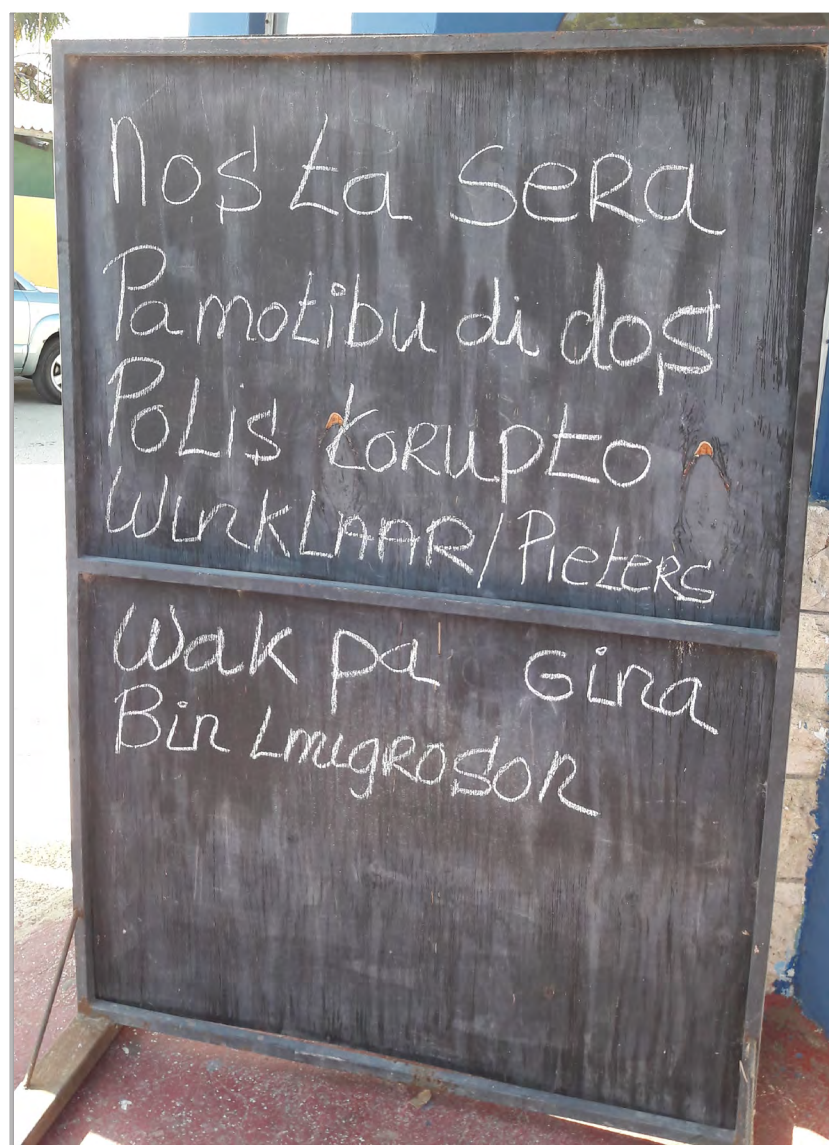 Nos ta sera
Pa motibu di dos
Polis korupto
Winklaar/Pieters
Wak pa Gina
Bin